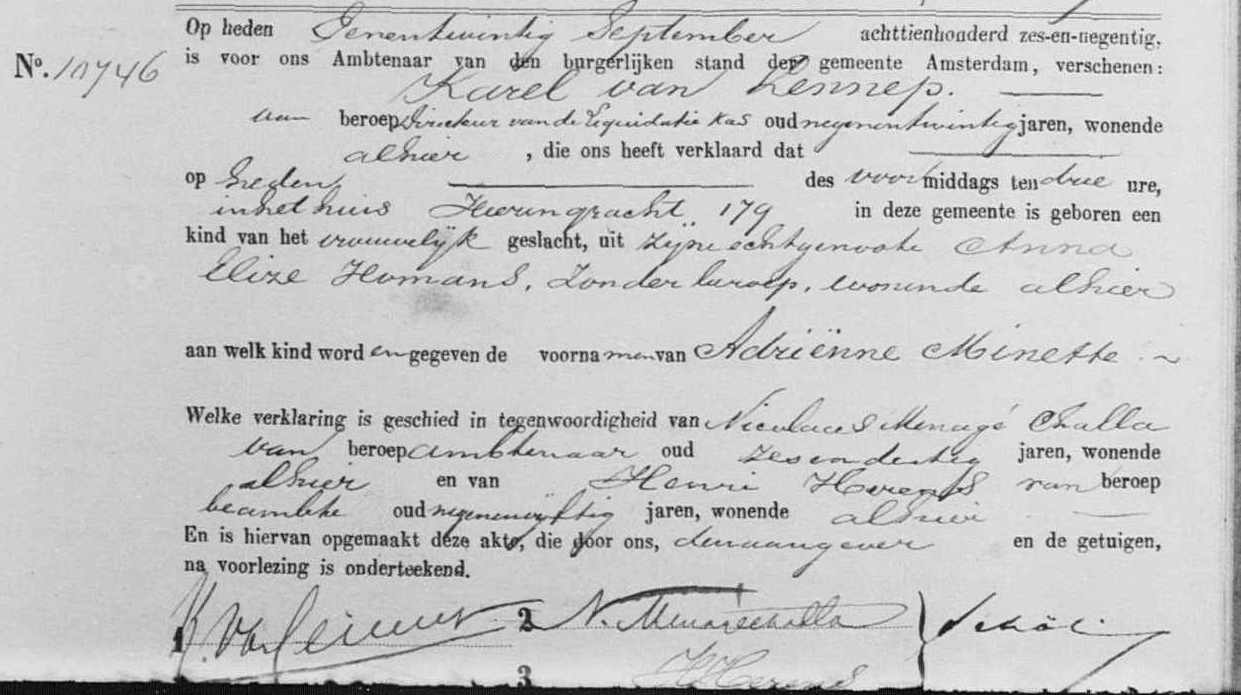 Op heden Eenentwintig September achttienhonderd zes-en-negentig,
No. 10746 is voor ons Ambtenaar van den burgerlijken stand der gemeente Amsterdam, verschenen:
Karel van Lennep.
van beroep Directeur van de Liquidatie Kas oud negenentwintig jaren, wonende
alhier , die ons heeft verklaard dat
op heden des voormiddags ten drie ure,
in het huis Heerengracht 179 in deze gemeente is geboren een
kind van het vrouwelijk geslacht, uit zijne echtgenoote Anna
Elize Homans, zonder beroep, wonende alhier
aan welk kind worden gegeven de voornamen van Adriënne Minette
Welke verklaring is geschied in tegenwoordigheid van Nicolaas Menagé Challa
van beroep ambtenaar oud zesendertig jaren, wonende
alhier en van Henri Herens van beroep
beambte oud negenenvijftig jaren, wonende alhier
En is hiervan opgemaakt deze akte, die door ons, den aangever en de getuigen,
na voorlezing is onderteekend.
1 K. van Lennep 2 N. Menagé Challa
3 H Herens